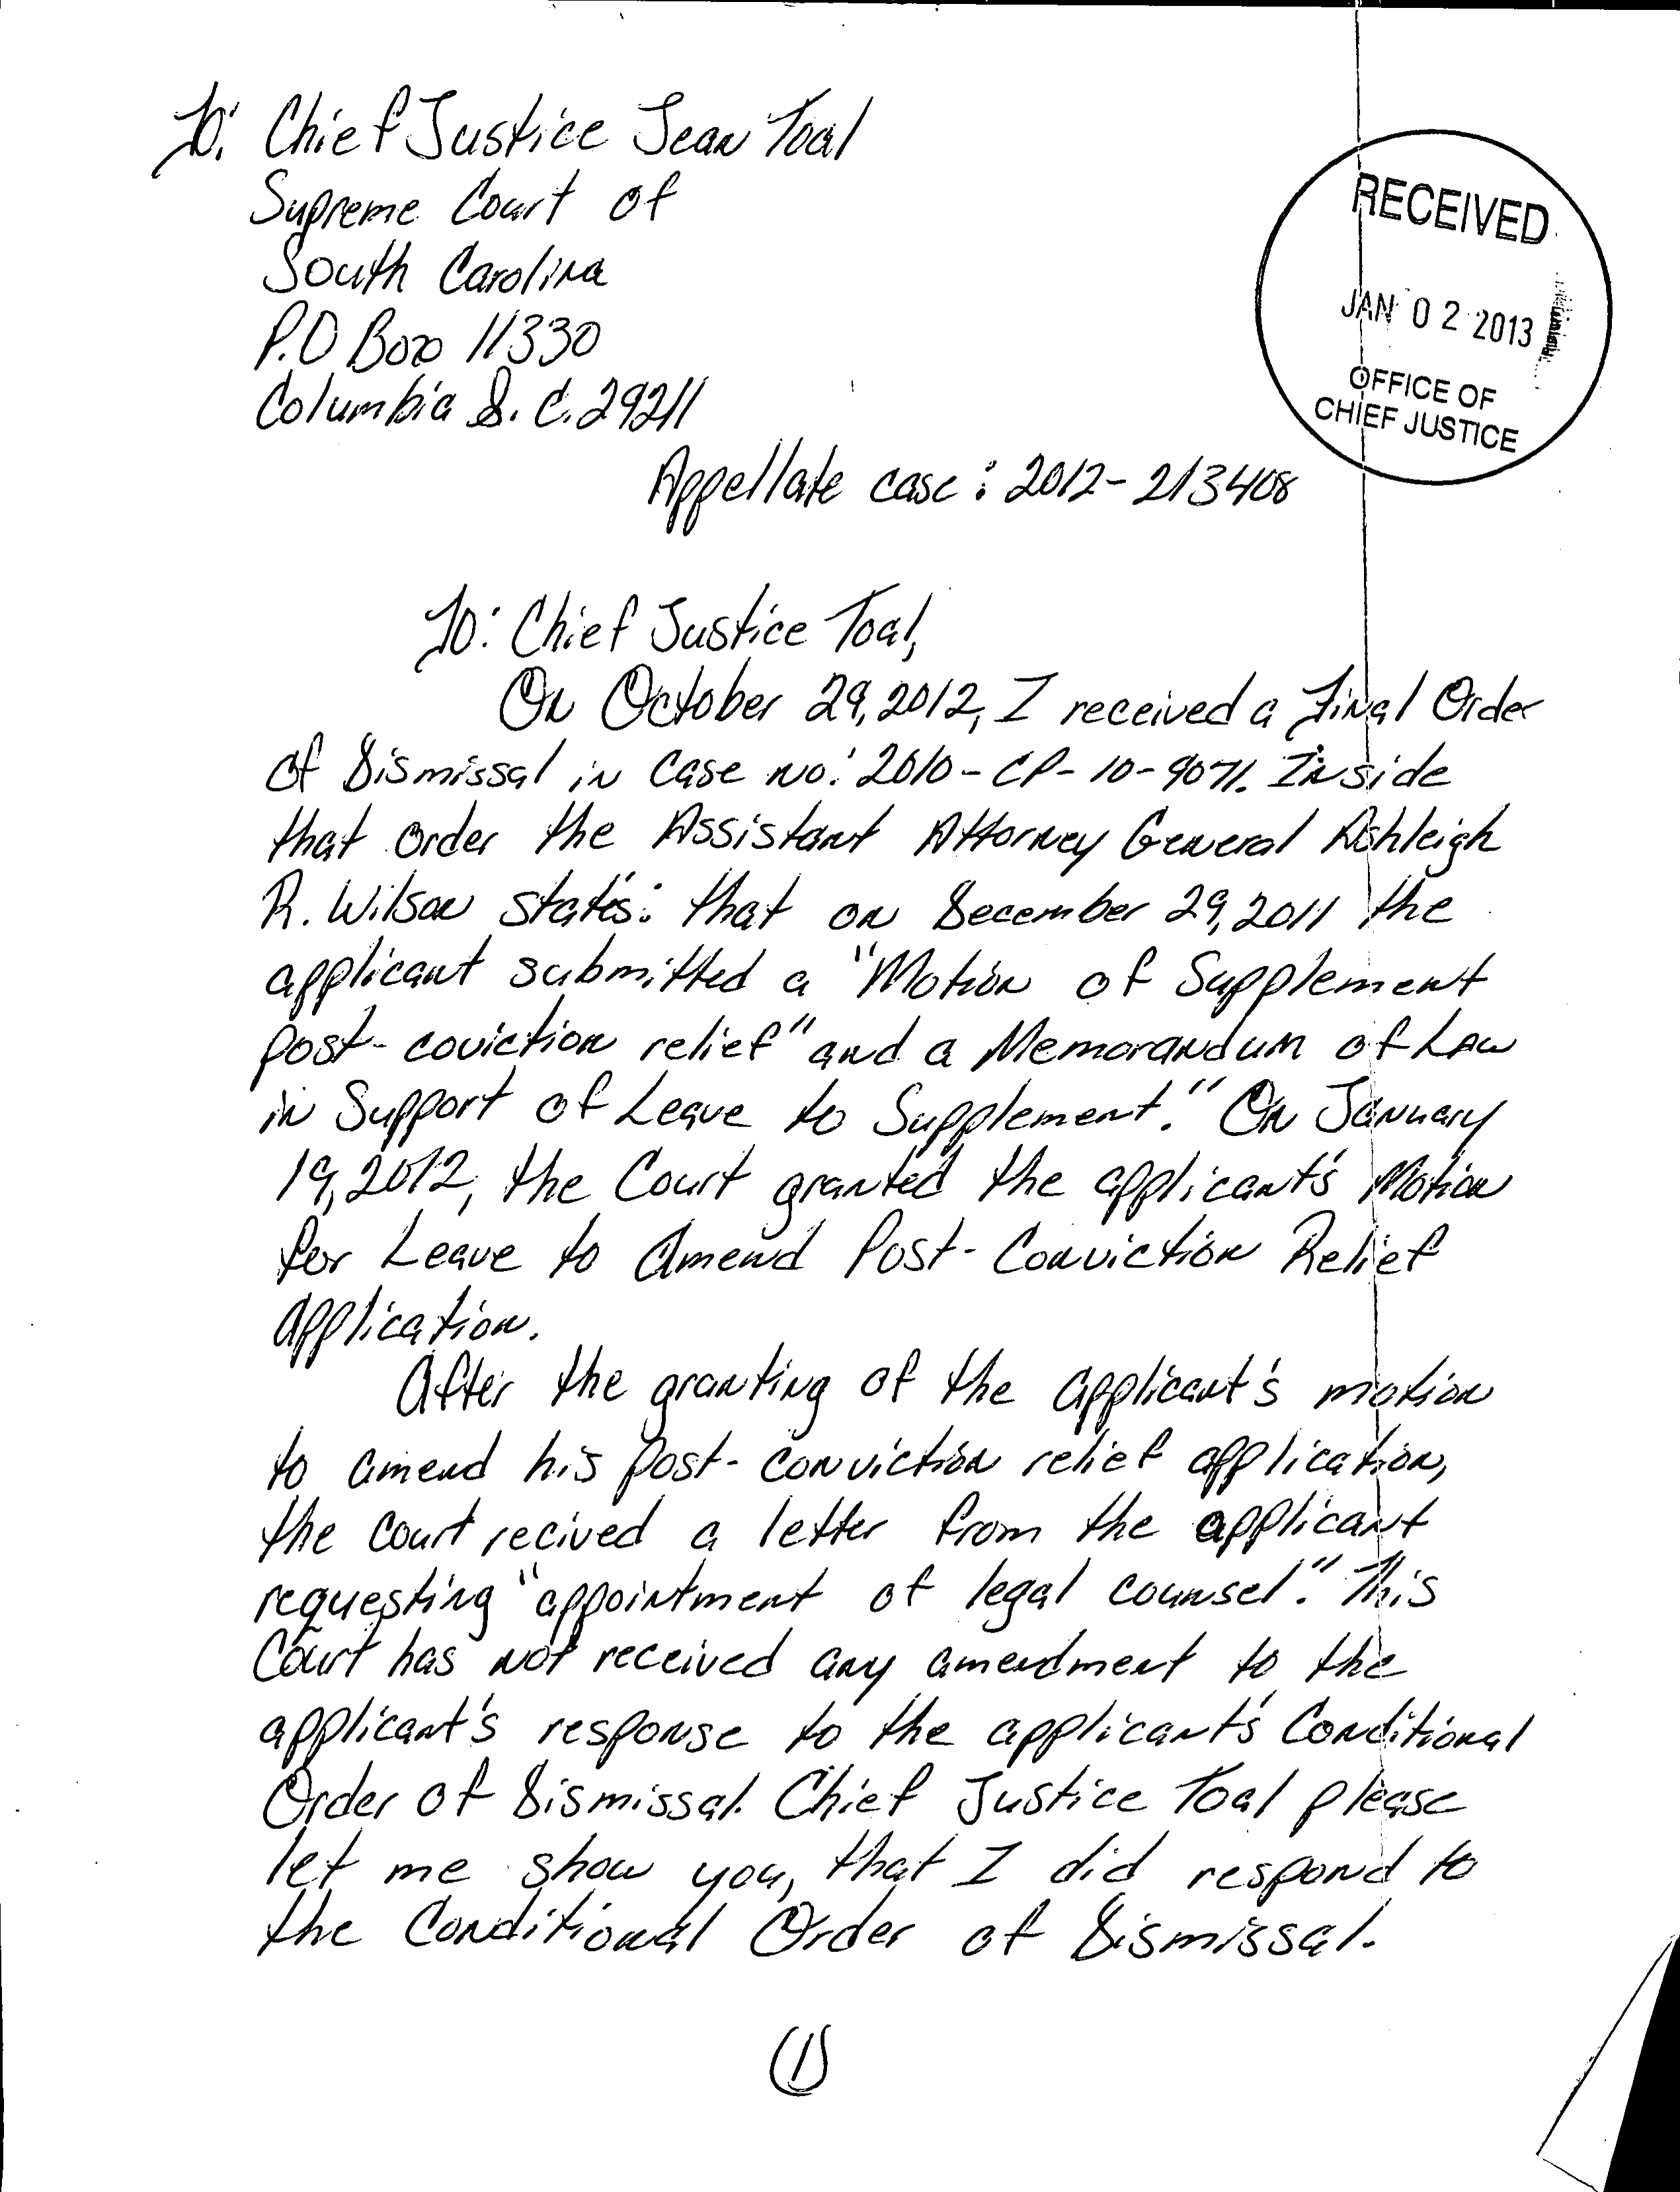 To: Chief Justice Jean Toal
Supreme Court of
South Carolina
P.O Box 11330
Columbia S. C. 29211
RECEIVED
JAN 02 2013
OFFICE OF
CHIEF JUSTICE
Appellate case: 2012-213408
To: Chief Justice Toal,
On October 29, 2012, I received a Final Order
of Dismissal in Case no: 2010-CP-10-9071. Inside
that order the Assistant Attorney General Ashleigh
R. Wilson states: that on December 29, 2011 the
applicant submitted a "Motion of Supplement
post-coviction relief" and a Memorandum of Law
in Support of Leave to Supplement." On January
19, 2012, the Court granted the applicant's Motion
for Leave to Amend Post-Conviction Relief
Application.
After the granting of the applicant's motion
to amend his post-conviction relief application,
the court recived a letter from the applicant
requesting "appointment of legal counsel." This
Court has not received any amendment to the
applicant's response to the applicant's Conditional
Order of Dismissal. Chief Justice Toal please
let me show you, that I did respond to
the Conditional Order of Dismissal.
(1)